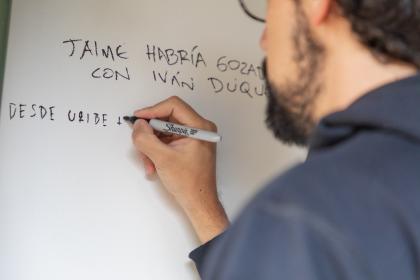 JAIME HABRÍA
CON IVÁN DUQUE
DESDE URIBE
Sharpie